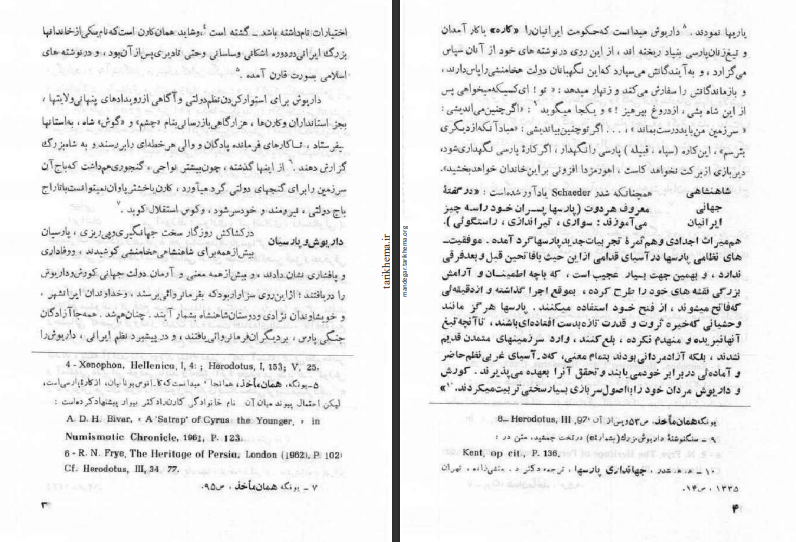 اختیارات تام داشته باشد ـ گشته است ۴، وشاید همان کارن است که نام یکی از خاندانها
بزرگ ایرانی در دوره اشکانی وساسانی وحتی تا دیری پس از آن بود ، و در نوشته های
اسلامی بصورت قارن آمده .۵
داریوش برای استوار کردن نظم دولتی و آگاهی از رویدادهای پنهانی ولایتها ،
بجز استانداران وکارنها ، هزارگاهی بازرسانی بنام «چشم» و «گوش» شاه ، به استانها
میفرستاد ، تا کارهای فرمانده پادگان و والی هر خطه‌ای رابررسند و به شاه بزرگ
گزارش دهند .۶ از اینها گذشته ، چون بیشتر نواحی ، گنجوری هم داشت که باج آن
سرزمین را برای گنجهای دولتی گرد میآورد ، کارن یا خشترپاوان نمیتوانست با تاراج
باج دولتی ، نیرومند و خودسر شود ، وکوس استقلال کوبد .۷
داریوش و پارسیان
در کشاکش روزگار سخت جهانگیری و پی ریزی ، پارسیان
بیش از همه برای شاهنشاهی هخامنشی کوشیدند ، و وفاداری
و پافشاری نشان دادند ، و بیش از همه معنی و آرمان دولت جهانی کورش و داریوش
را دریافتند ؛ ازاین روی سزاوار بود که بفرمانروائی برسند ، و خداوندان ایرانشهر ،
و خویشاوندان نژادی و دوستان شاهنشاه بشمار آیند . چنان هم شد . همه جا آزادگان
جنگی پارس ، بر دیگران فرمانروائی یافتند ، و در پیشبرد نظم ایرانی ، داریوش را
4 - Xenophon, Hellenica, I, 4: ; Herodotus, I, 153; V, 25.
۵ـ یونگه، همان مأخذ، همانجا
لیکن احتمال پیوند میان آن نام خانوادگی کارن را دکتر بیوار پیشنهاد کرده است :
A. D. H. Bivar, « A 'Satrap' of Cyrus the Younger, » in
Numismatic Chronicle, 1961, P. 123.
6 - R. N. Frye, The Heritage of Persia, London (1962), P. 102;
Cf. Herodotus, III, 34, 77.
۷ ـ یونگه همان مأخذ ، ص ۹۵.
۳
یاریها نمودند .۸ داریوش میدانست که حکومت ایرانیان را «کاره» یا کارآمدان
و تیغ زنان پارسی بنیاد ریخته اند ، از این روی در نوشته های خود از آنان سپاس
می گزارد ، و به آیندگانش می سپارد که این نگهبانان دولت هخامنشی را پاس دارند ،
و بازماندگانش را سفارش می کند و زنهار میدهد : « تو ! ای کسیکه میخواهی پس
از این شاه بشی ، از دروغ بپرهیز !» و یکجا میگوید ۹: «اگر چنین می اندیشی :
« سرزمین من باید درست بماند » ، ... اگر تو چنین بیاندیشی : «مبادا آنکه از دیگری
بترسم» ، این کاره (سپاه ، قبیله) پارسی را نگهدار ، اگر کارهٔ پارسی نگهداری شود،
دیر بازی از برکت نخواهد کاست ، اهورمزدا افزونی بر این خاندان خواهد بخشید».
شاهنشاهی
جهانی
ایرانیان
همچنانکه شدر Schaeder یادآور شده است : «در گفتهٔ
معروف هردوت (پارسها پسران خود را سه چیز
می آموزند : سواری ، تیراندازی ، راستگوئی).
هم میراث اجدادی و هم ثمرهٔ تجربیات جدید پارسها گرد آمده . موفقیت‌ـ
های نظامی پارسها در آسیای قدامی از این حیث با فاتحین قبل و بعد فرقی
ندارد ، و بهمین جهت بسیار عجیب است ، که باچه اطمینان و آرامش
بزرگی نقشه های خود را طرح کرده ، بموقع اجرا گذاشته و از دقیقه‌ئی
که فاتح میشوند ، از فتح خود استفاده میکنند . پارسها هرگز مانند
وحشیانی که خیرهٔ ثروت و قدرت تازه بدست افتاده‌ای باشند ، تا آنچه تیغ
آنها نبریده و منهدم نکرده ، بلع کنند ، وارد سرزمینهای متمدن قدیم
نشدند ، بلکه آزادمردانی بودند بتمام معنی، که در آسیای غربی نظم حاضر
و آماده‌ئی در برابر خود می یابند و تحقق آنرا بعهده می پذیرند . کورش
و داریوش مردان خود را با اصول سربازی بسیار سختی تربیت میکردند.۱۰»
8_ Herodotus, III ,97. یونگه همان مأخذ، ص ۵۲ و پس از آن
۹ ـ سنگنوشتهٔ داریوش بزرگ (بشمار e) در تخت جمشید، متن در :
Kent, op cit., P. 136.
۱۰ ـ ه. ه. شدر ، جهانداری پارسها ، ترجمه دکتر د . منشی زاده ، تهران
۱۳۳۵ ، ص ۱۴.
۴
tarikhema.ir
mandegar.tarikhema.org